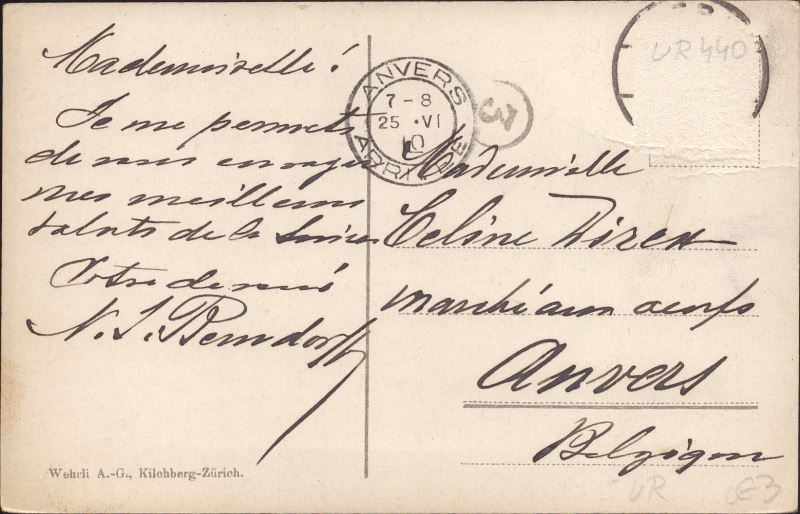 Mademoiselle!
Je me permets
de vous envoyer
mes meilleurs
saluts de la Suisse
Votre dévoué
N. J. Berndorff
ANVERS
7-8
25 • VI
10
ARRIVÉE
3
UR 440
Mademoiselle
Celine Dircx
Marché aux oeufs
Anvers
Belgique
Wehrli A.-G., Kilchberg-Zürich.
UR